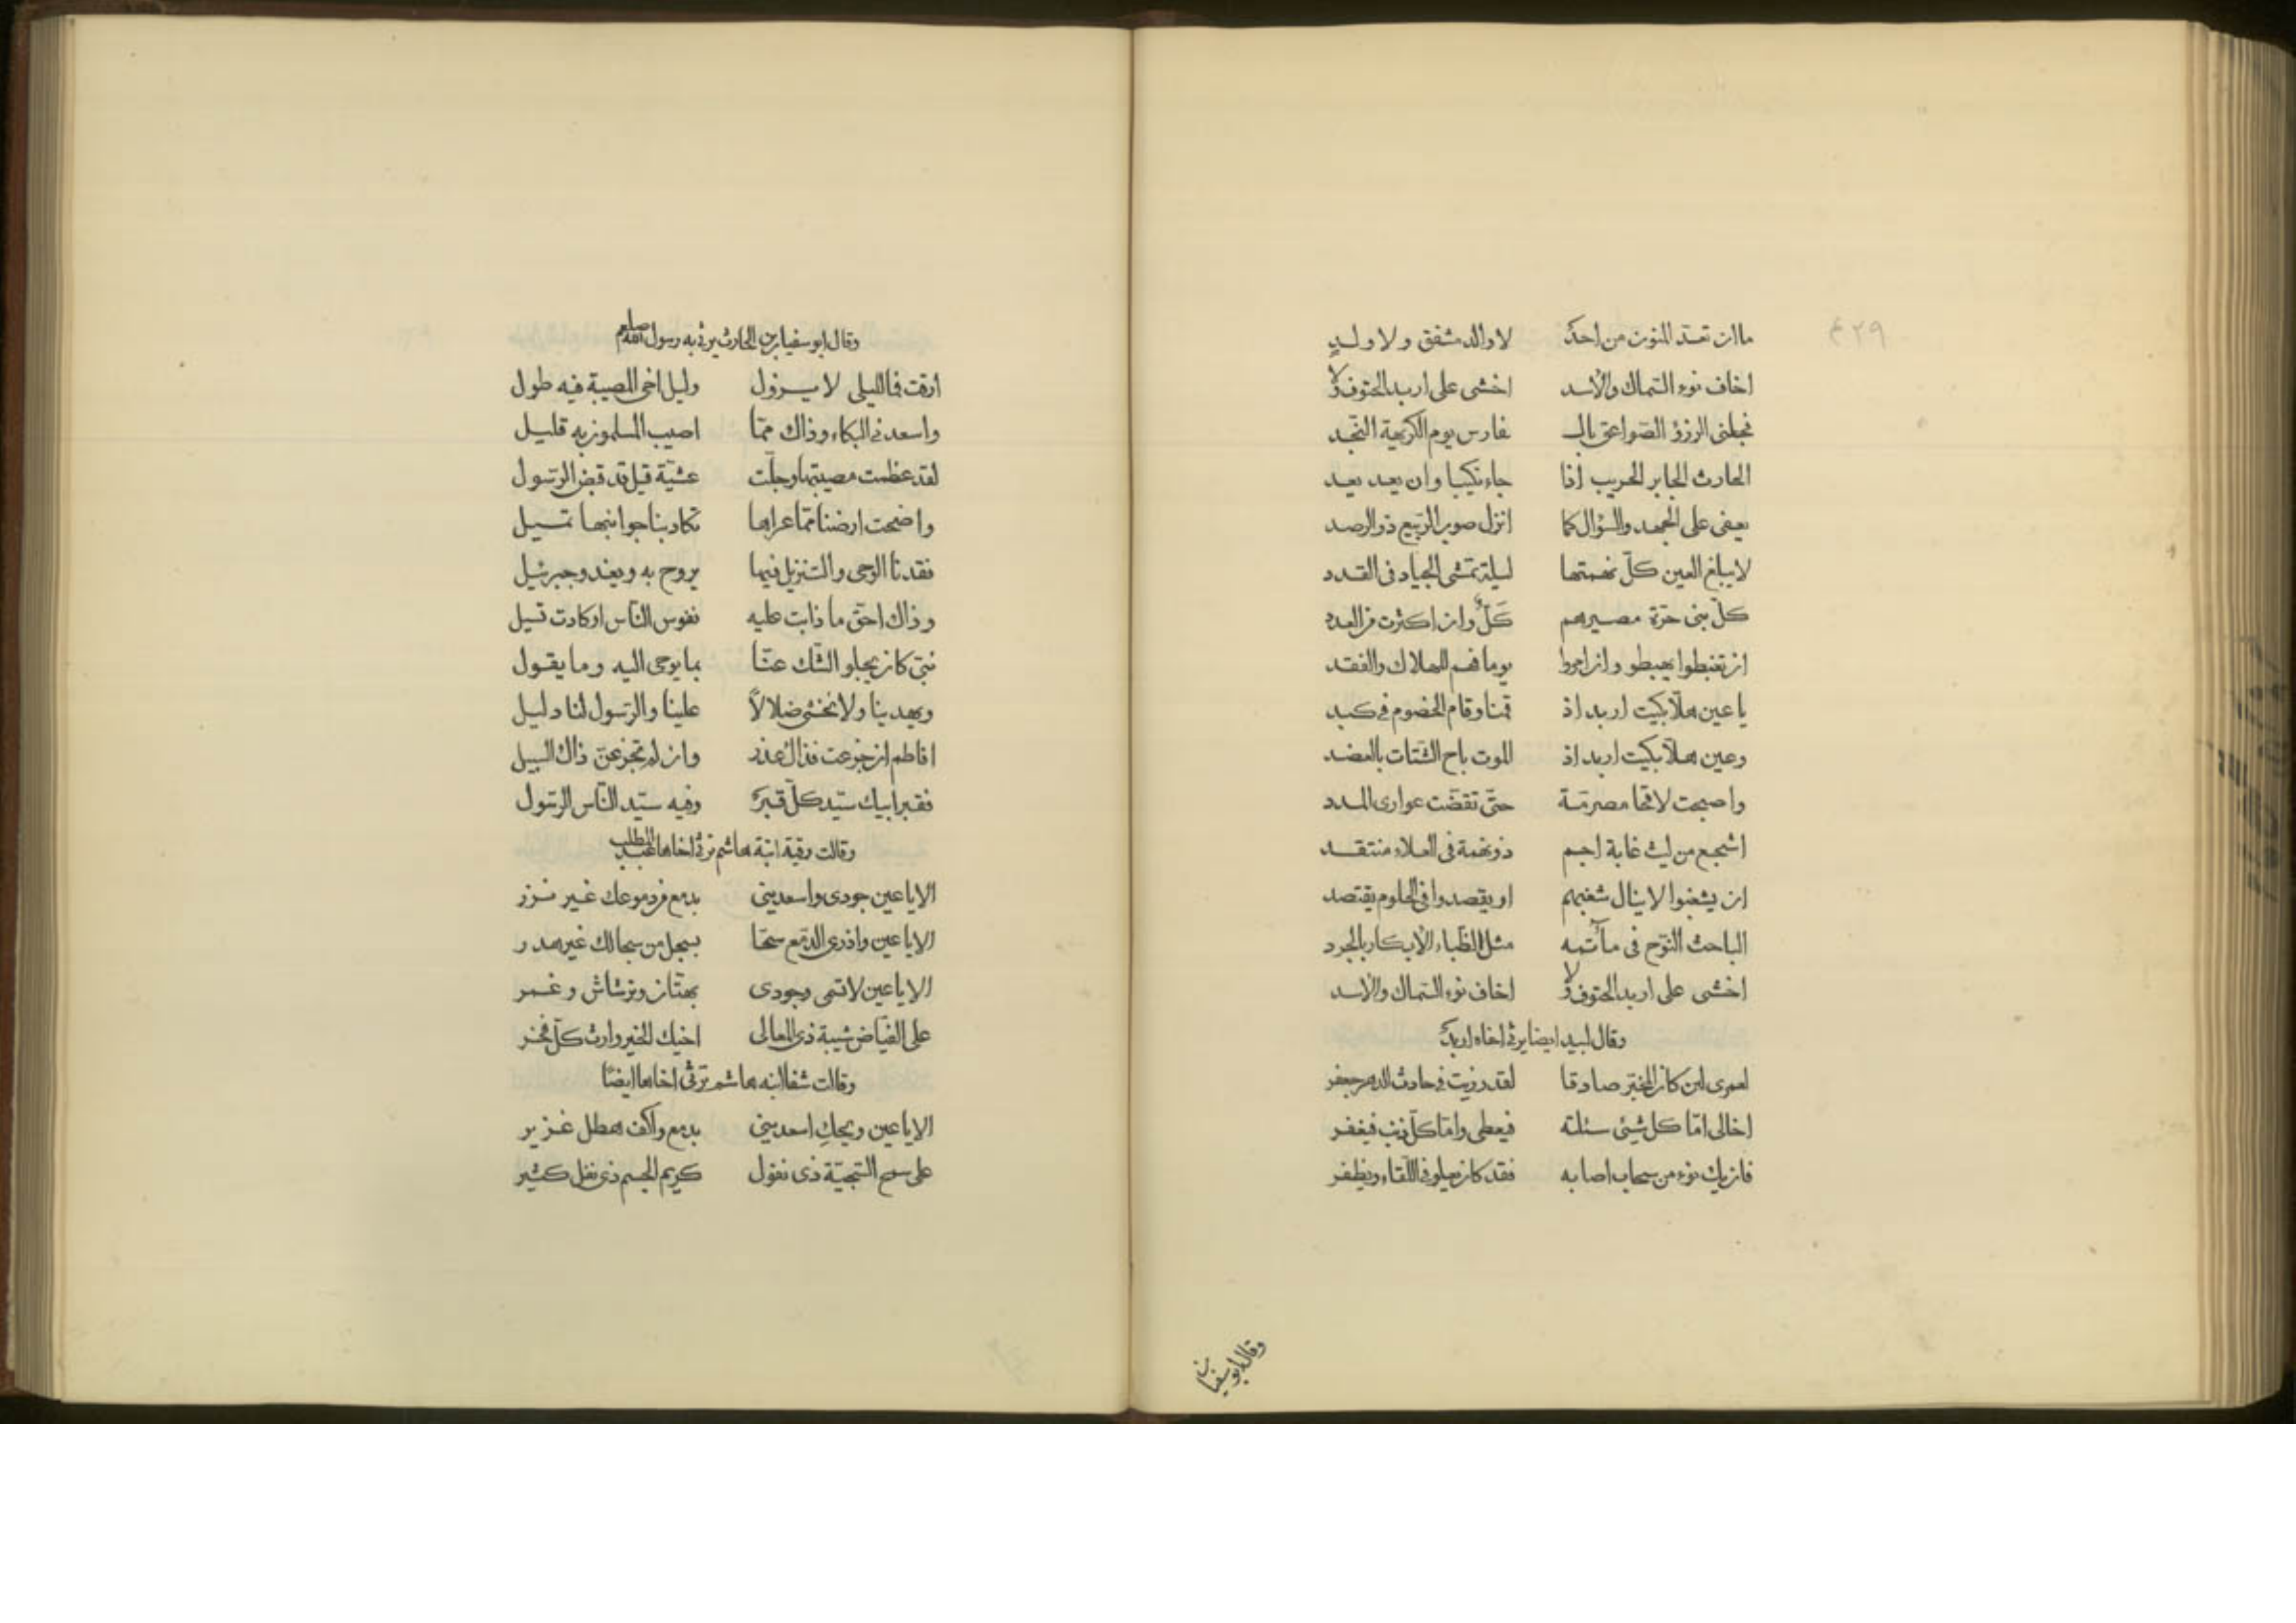 ٤٢٩
ما ان تعد المنون من احد لا والد مشفق ولا ولد
اخشى على اربد الحتوف ولا اخاف نوء السماك والاسد
فجعنى الرزؤ الصواعق بالـ ـفارس يوم الكريهة النجد
الحارث الجابر الحريب اذا جاء نكيبا وان يعد يعد
يعفى على الجهد والسؤال كما انزل صوب الربيع ذو الرصد
لا يبلغ العين كل نهمتها ليلة تمشى الجياد فى القدد
كل بنى حرة مصيرهم كل وان اكثرت من العدد
ان تغبطوا يهبطو وان امروا يوما فهم للهلاك والفقد
يا عين هلا بكيت اربد اذ قمنا وقام الخصوم فى كبد
وعين هلا بكيت اربد اذ الموت باح الشتات بالعضد
واصبحت لاقحا مصرمة حتى تقضت عوارى المدد
اشجع من ليث غابة اجم ذو نهمة فى العلاء منتقد
ان يشغبوا لا ينال شغبهم او يقصدوا فى الحلوم يقتصد
الباعث النوح فى مآتمه مثل الظباء الابكار بالجرد
اخشى على اربد الحتوف ولا اخاف نوء السماك والاسد
وقال لبيد ايضا يرثى اخاه اربد
لعمرى لئن كان المخبر صادقا لقد رزيت فى حادث الدهر جعفر
اخا لى اما كل شيئ سئلته فيعطى واما كل ذنب فيغفر
فان يك نوء من سحاب اصابه فقد كان يعلو فى اللقاء ويظفر
وقال ابو سفيان بن
وقال ابو سفيان بن الحارث يرثى به رسول الله صلعم
ارقت فبات ليلى لا يزول وليل اخى المصيبة فيه طول
واسعدنى البكاء وذاك مما اصيب المسلمون به قليل
لقد عظمت مصيبتها وجلت عشية قيل قد قبض الرسول
واضحت ارضنا مما عراها تكاد بنا جوانبها تميل
فقدنا الوحى والتنزيل فيها يروح به ويغدو جبرئيل
وذاك احق ما ذابت عليه نفوس الناس او كادت تسيل
نبى كان يجلو الشك عنا بما يوحى اليه وما يقول
ويهدينا ولا نخشى ضلالا علينا والرسول لنا دليل
افاطم ان جزعت فذاك عذر وان لم تجزعى ذاك السبيل
فقبر ابيك سيد كل قبر وفيه سيد الناس الرسول
وقالت رقية ابنة هاشم ترثى اخاها عبد المطلب
الا يا عين جودى واسعدينى بدمع من دموعك غير نزر
الا يا عين واذرى الدمع سحا بسجل من سجالك غير هدر
الا يا عين لا تنمى وجودى بهتان وترشاش وغمر
على الفياض شيبة ذى المعالى اخيك الخير وارث كل فخر
وقالت شفا ابنه هاشم ترثى اخاها ايضا
الا يا عين ويحك اسعدينى بدمع واكف هطل غزير
على سمح السجية ذى فضول كريم الجسم ذى نفل كثير